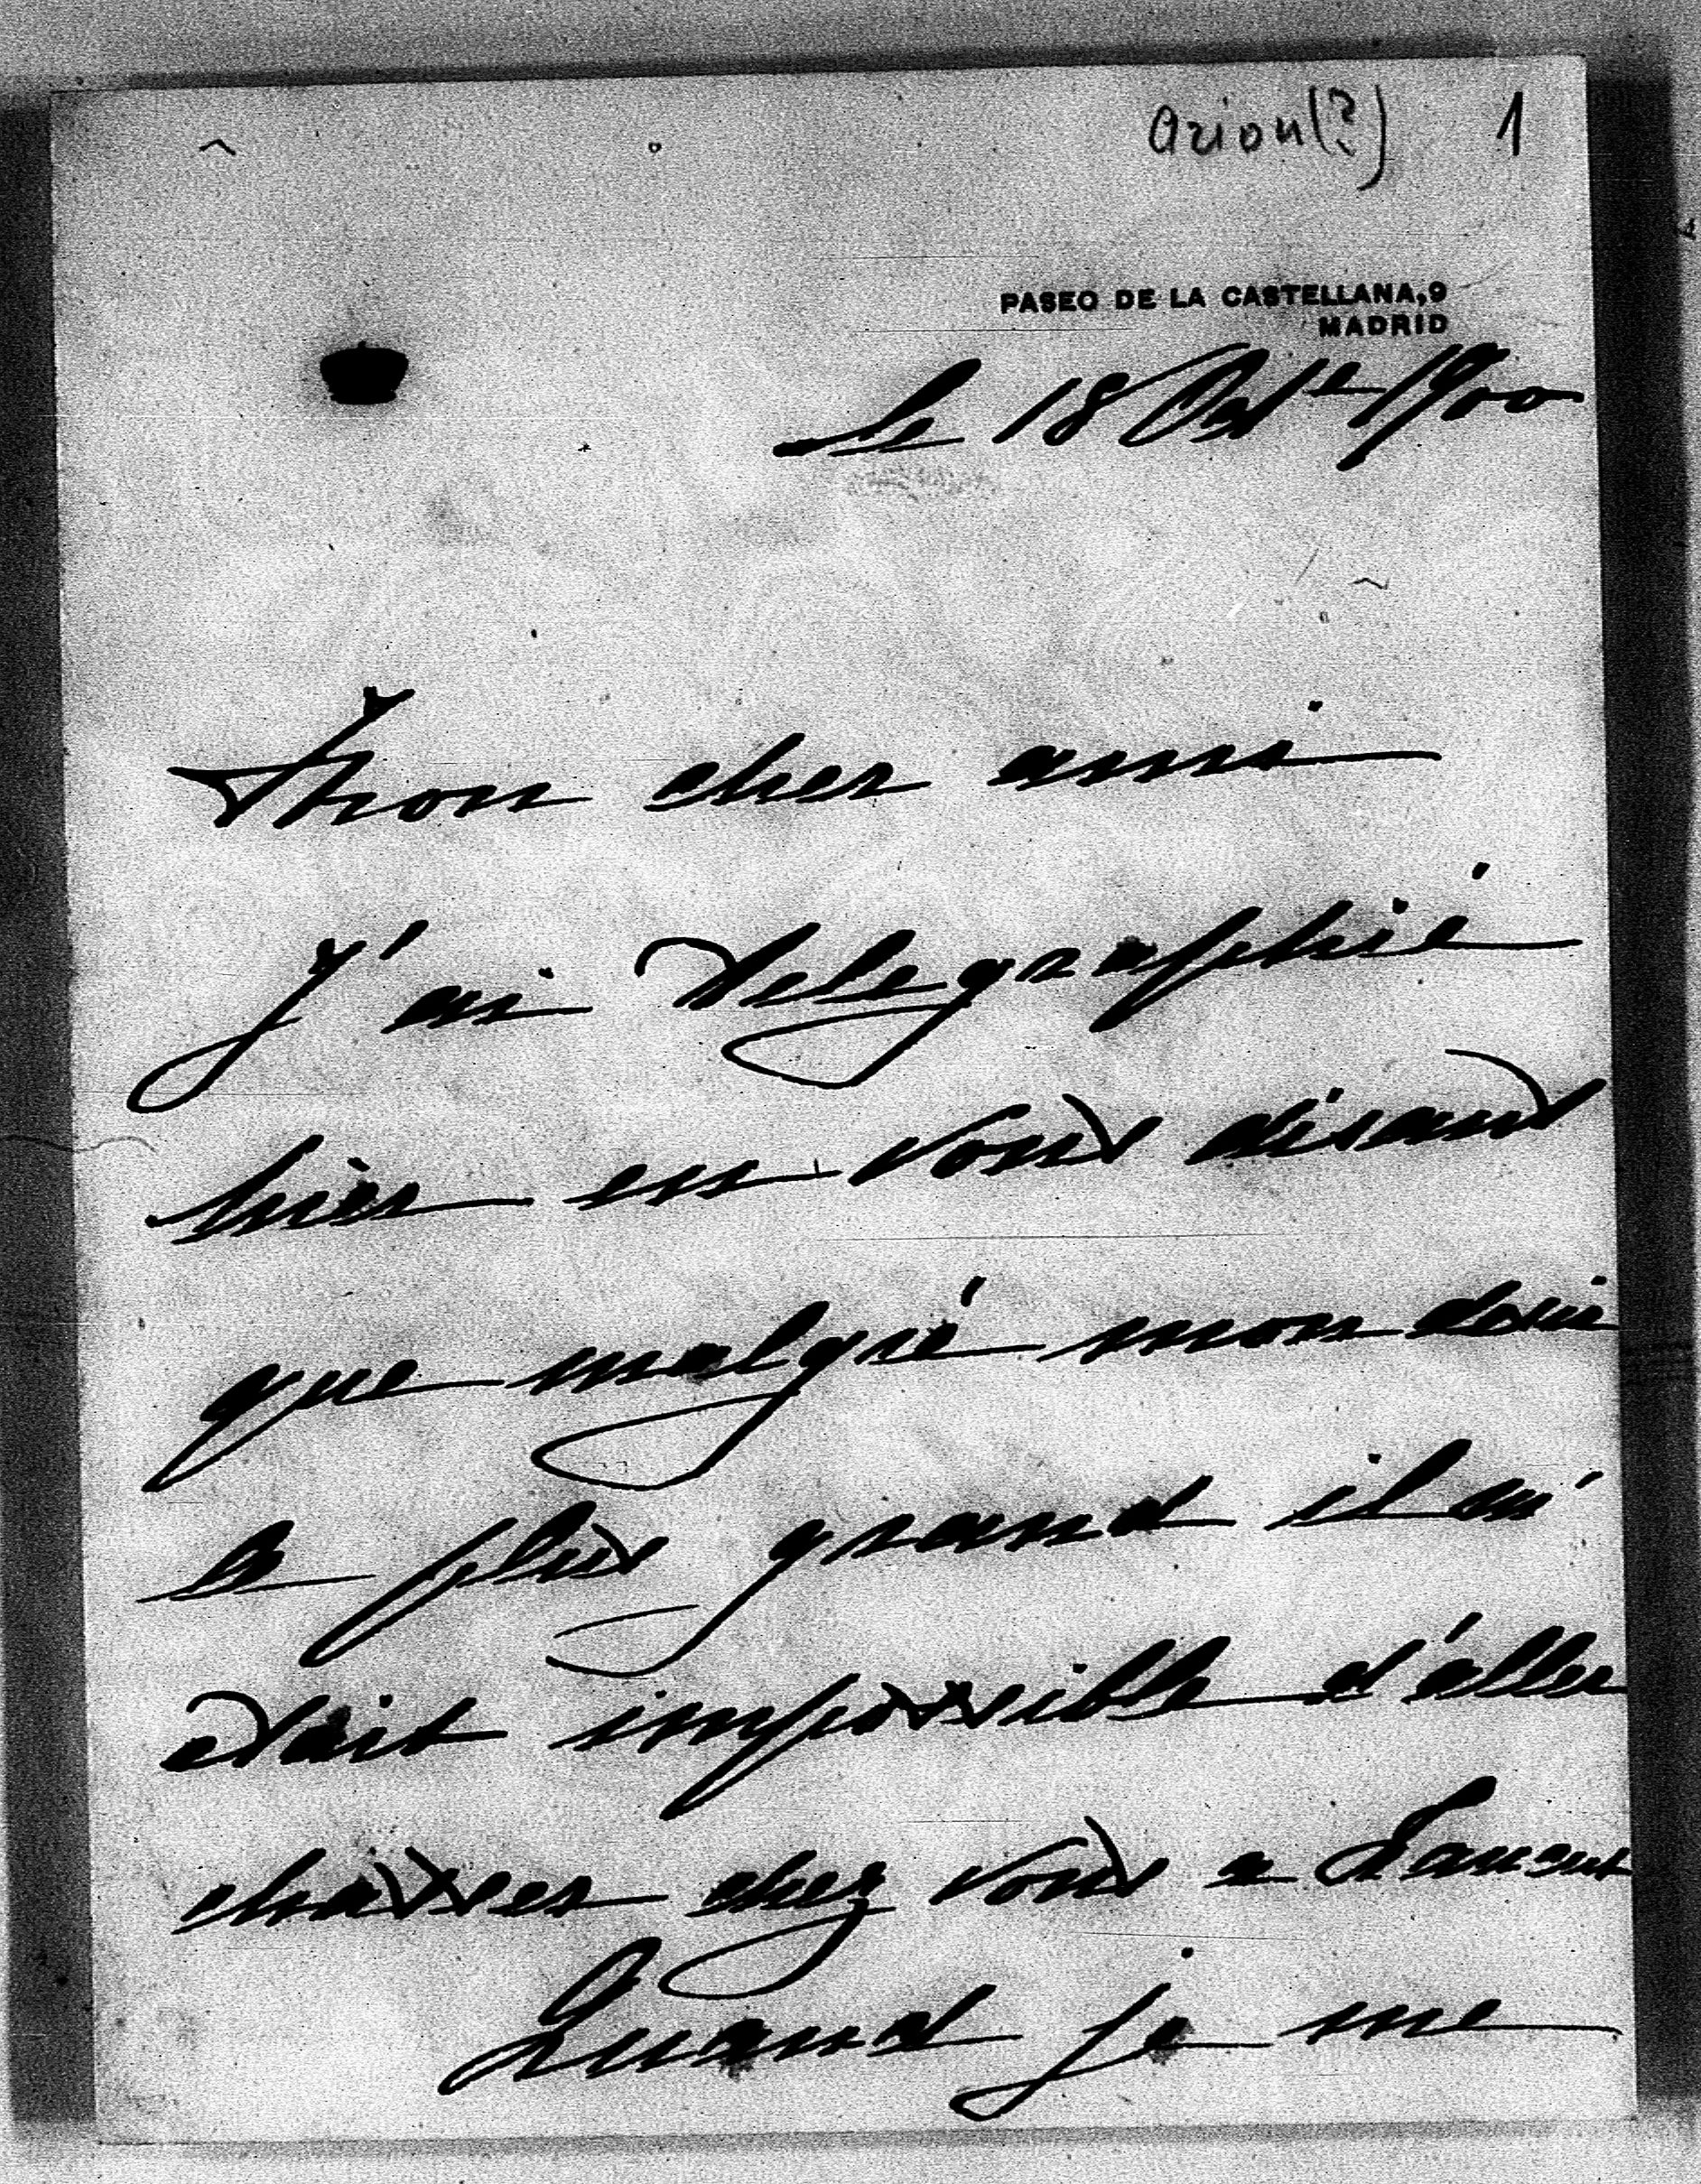 Arion(?) 1
PASEO DE LA CASTELLANA, 9
MADRID
Le 18 Oct^e 1900
Mon cher ami
J'ai telegraphié
hier en vous disant
que malgré mon desir
le plus grand il m'
etait impossible d'aller
chasser chez vous a
Quand je me